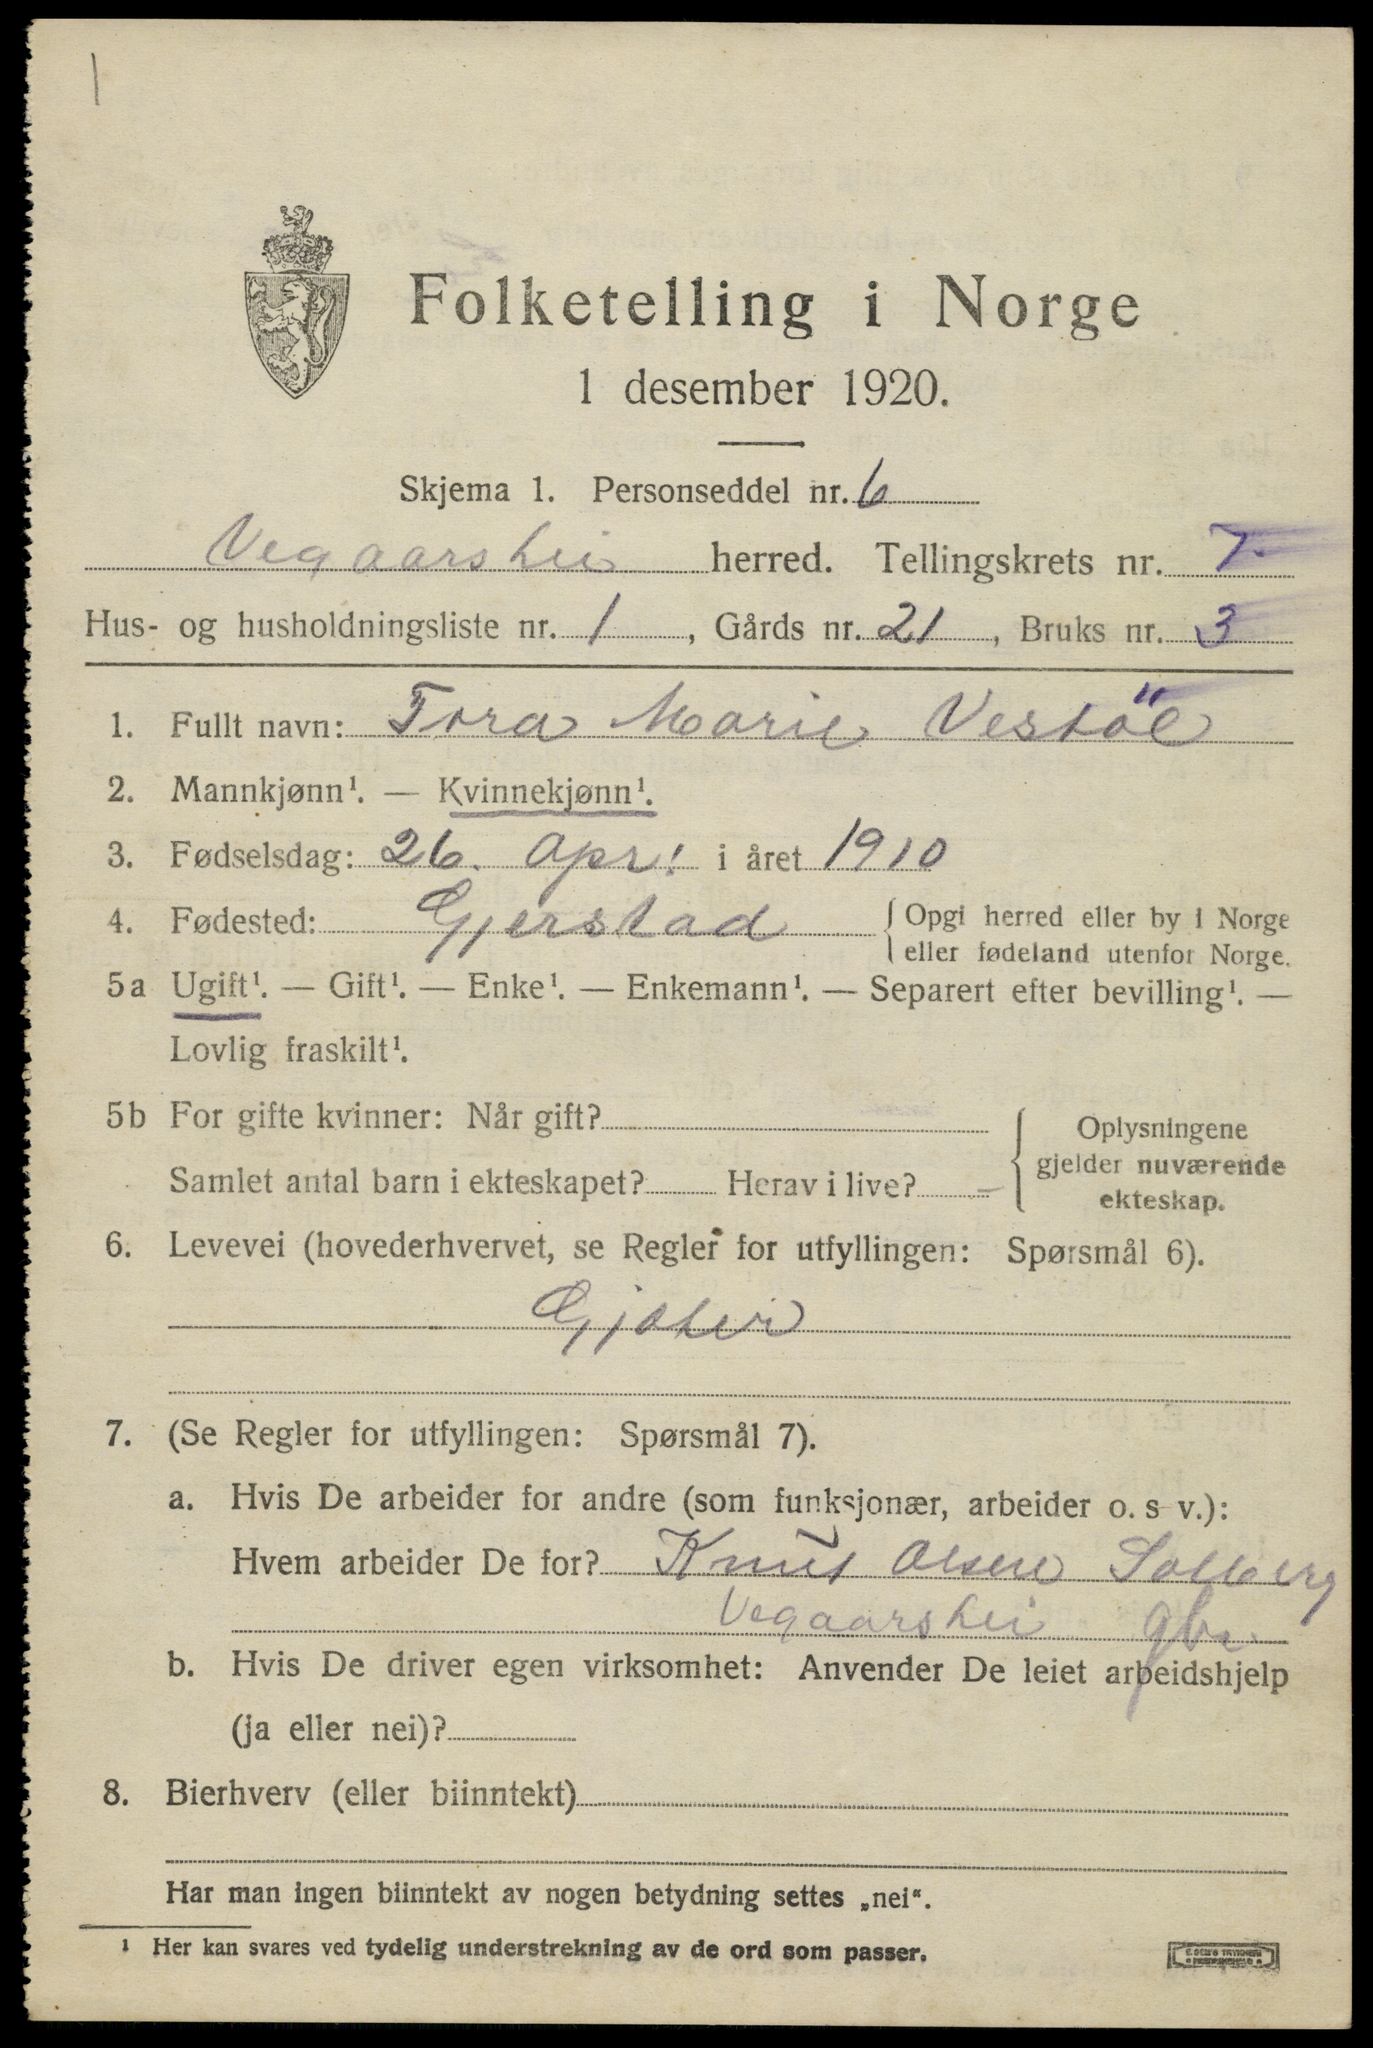 Folketelling i Norge
1 desember 1920.
Skjema 1. Personseddel nr. 6
Vegaarshei herred. Tellingskrets nr. 7.
Hus- og husholdningsliste nr. 1, Gårds nr. 21, Bruks nr. 3
1. Fullt navn: Tora Marie Vestöl
2. Mannkjønn¹. — Kvinnekjønn¹.
3. Fødselsdag: 26. apr: i året 1910
4. Fødested: Gjerstad {Opgi herred eller by i Norge
eller fødeland utenfor Norge.
5a Ugift¹. — Gift¹. — Enke¹. — Enkemann¹. — Separert efter bevilling¹. —
Lovlig fraskilt¹.
5b For gifte kvinner: Når gift?
Samlet antal barn i ekteskapet? Herav i live? —
Oplysningene
gjelder nuværende
ekteskap.
6. Levevei (hovederhvervet, se Regler for utfyllingen: Spørsmål 6).
Gjæter
7. (Se Regler for utfyllingen: Spørsmål 7).
a. Hvis De arbeider for andre (som funksjonær, arbeider o. s v.):
Hvem arbeider De for? Knut Olsen Solberg
Vegaarshei gbr.
b. Hvis De driver egen virksomhet: Anvender De leiet arbeidshjelp
(ja eller nei)?
8. Bierhverv (eller biinntekt)
Har man ingen biinntekt av nogen betydning settes „nei“.
¹ Her kan svares ved tydelig understrekning av de ord som passer.